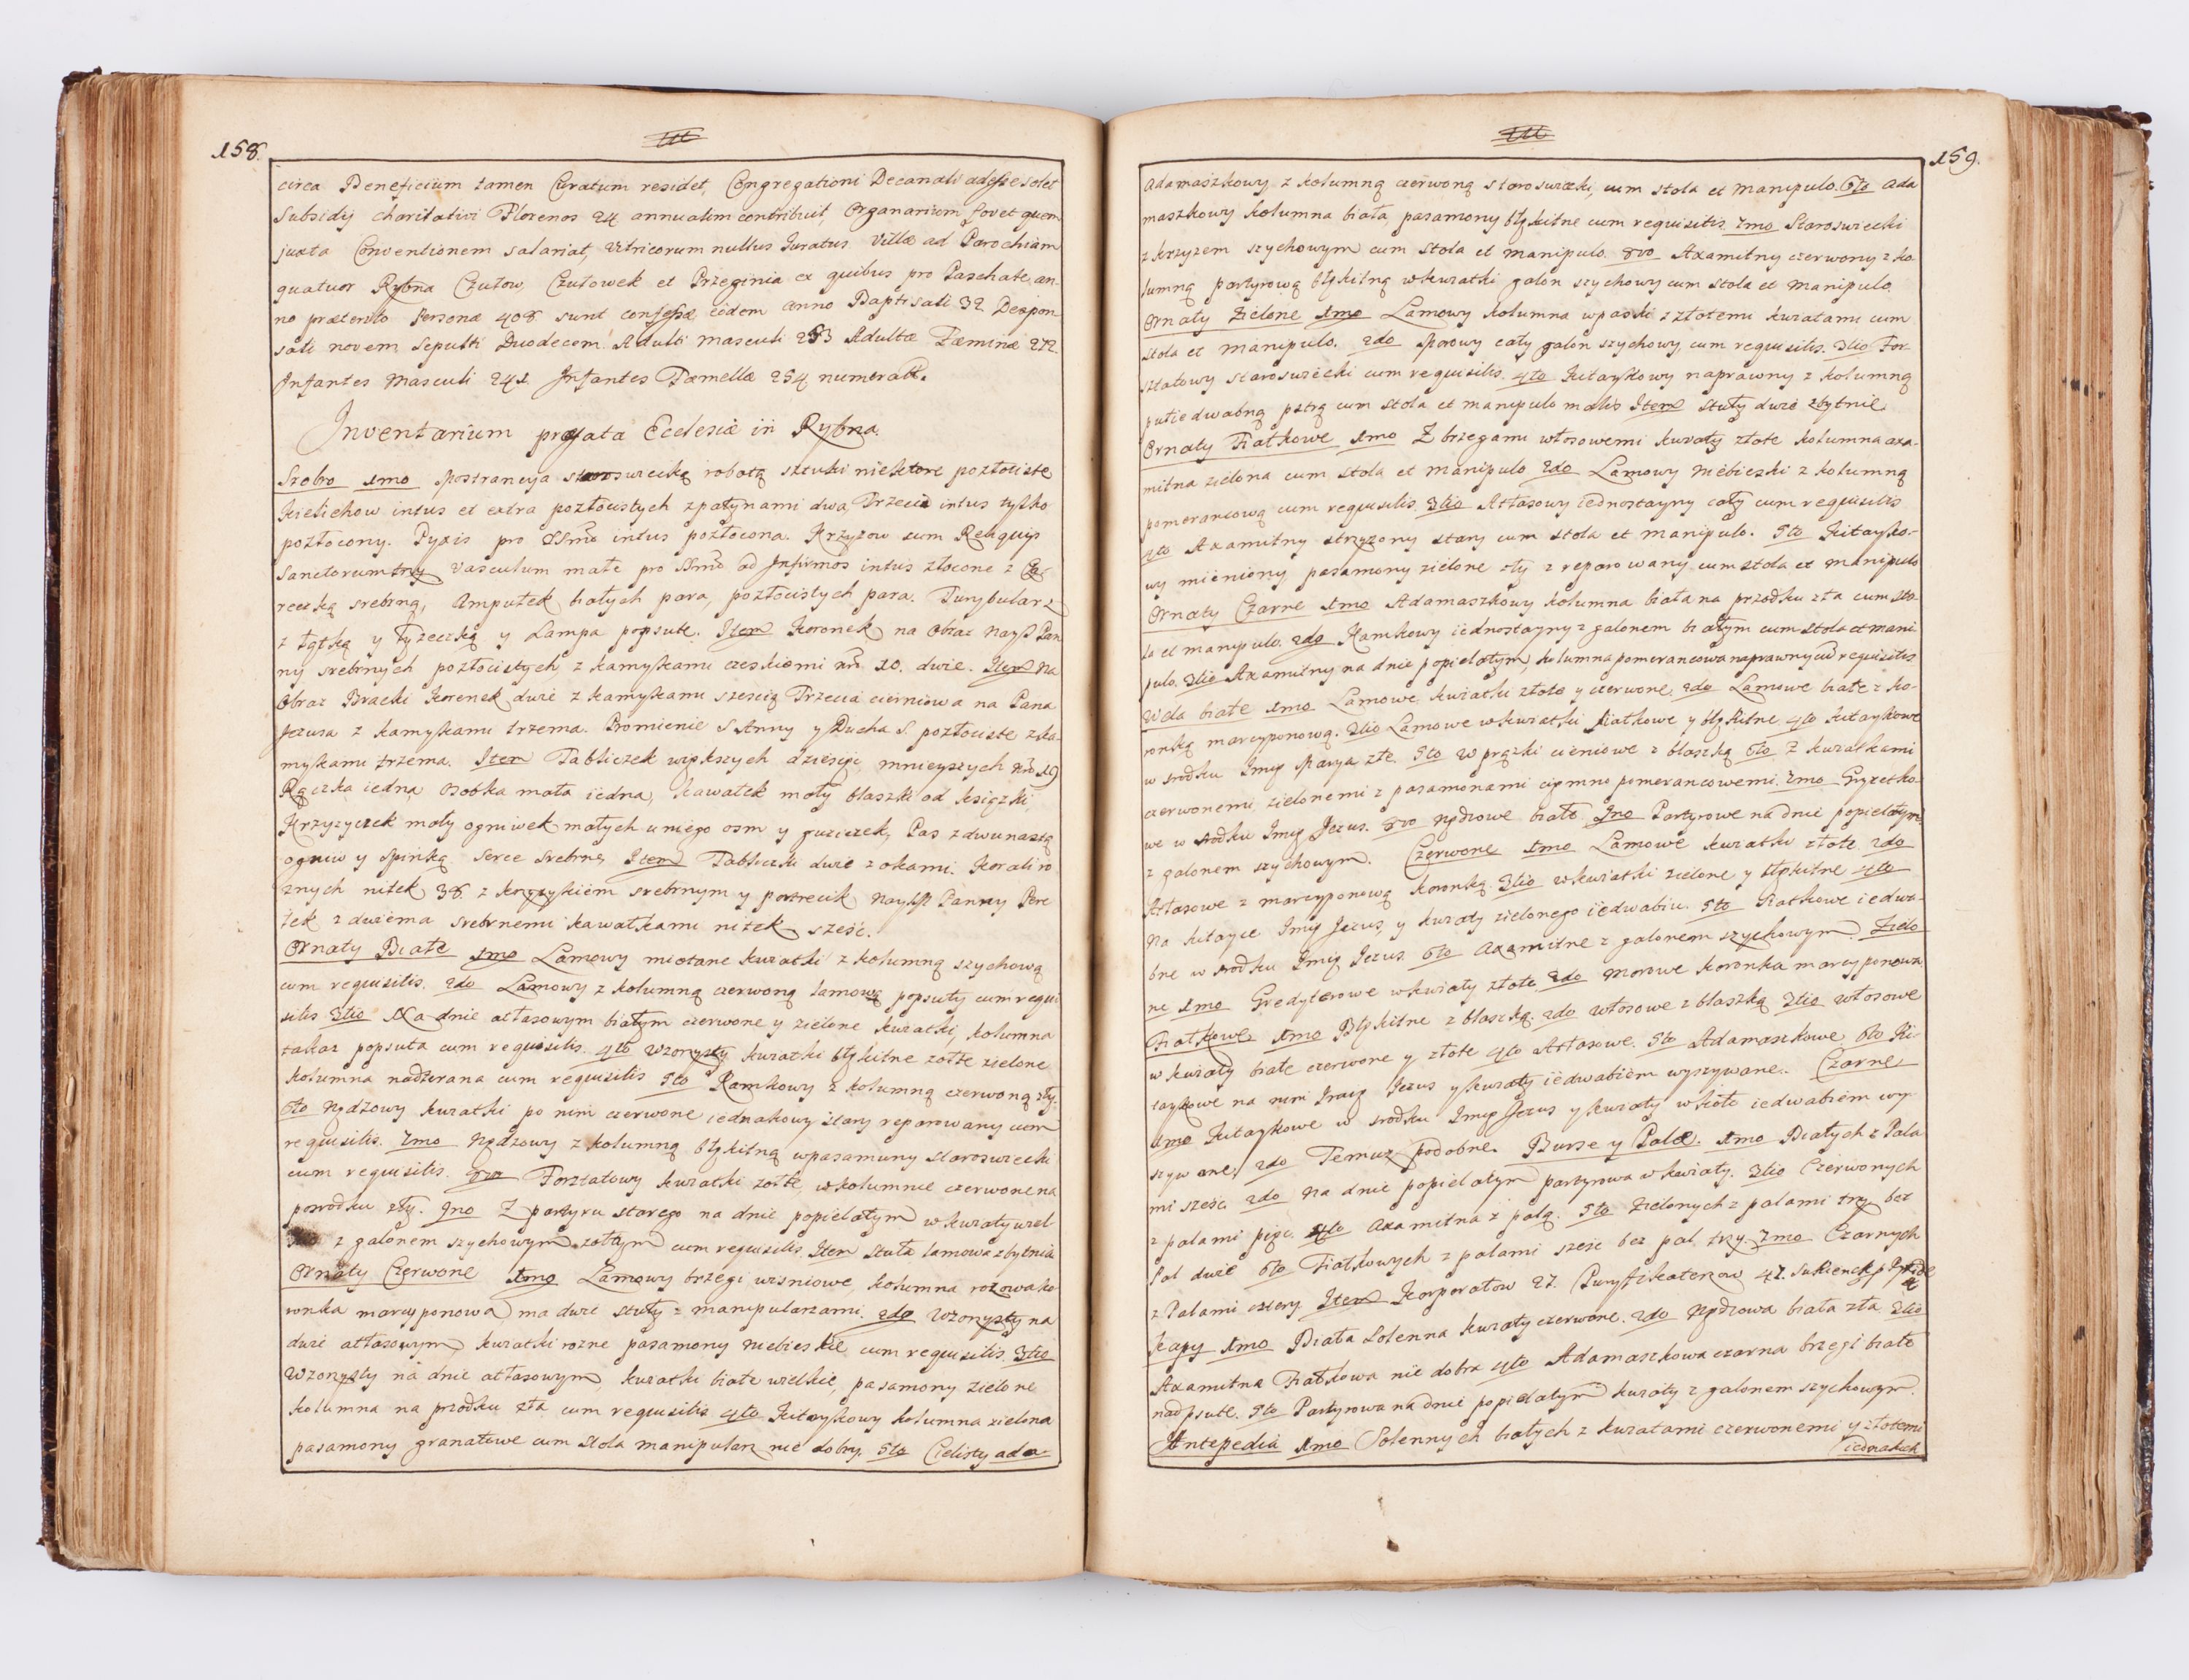 158.
circa Beneficium tamen Curatum residet, Congregationi Decanali adesse solet
Subsidij charitativi Florenos 24 annuatim contribuit, Organarium fovet quem
juxta Conventionem salariat, Vitricorum nullus Iuratus. Villæ ad Parochiam
quatuor Rybna Czułow, Czułowek et Przeginia ex quibus pro Paschate an-
no præterito Personæ 408 sunt confessæ eodem Anno Baptisati 32 Despon-
sati novem Sepulti Duodecem. Adulti Masculi 253 Adultæ Fæminæ 272.
Infantes Masculi 242. Infantes Fæmellæ 254 numerati.
Inventarium præfatæ Ecclesiæ in Rybna.
Srebro 1mo Mostrancya staroswiecką robotą sztuki niektore pozłociste
Kielichow intus et extra pozłocistych z patynami dwa, Trzeci intus tylko
pozłocony. Pyxis pro SSmo intus pozłocona. Krzyzow cum Reliquijs
Sanctorum trzy Vasculum małe pro SSmo ad Infirmos intus złocone z
reczką srebrną, Ampułek białych para, pozłocistych para. Turybularz
z łotką y łyzeczką y Lampa popsute. Item Koronek na Obraz Nayss Pan
ny srebrnych pozłocistych z kamyskami czeskiemi nro 10. dwie. Item Na
Obraz Bracki Koronek dwie z kamyskami szescią Trzecia cierniowa na Pana
Jezusa z kamyskami trzema. Promienie S Anny y Ducha S. pozłociste z ka-
myskami trzema. Item Tabliczek większych dziesięc, mnieyszych nro 19
Rączka iedna osobka mała iedna, kawałek mały blaszki od ksiązki
Krzyzyczek mały ogniwek małych u niego osm y guziczek, Pas z dwunastą
ogniw y spinką. Serce srebrne, Item Tabliczki dwie z okami. Korali ro
znych nitek 38. z krzyzykiem srebrnym y portrecik Nayss Panny Pere
łek z dwiema srebrnemi kawałkami nitek szesc.
Ornaty Białe 1mo Lamowy miotane kwiatki z kolumną szychową
cum requisitis. 2do Lamowy z kolumną czerwoną lamową popsuty cum requi
sitis 3tio Na dnie atłasowym białym czerwone y zielone kwiatki, kolumna
takaz popsuta cum requisitis. 4to Wzorzysty kwiatki błękitne zołte zielone
kolumna nadzierana cum requisitis 5to Ramkowy z kolumną czerwoną zły.
6to Nędzowy kwiatki po nim czerwone iednakowy stary reparowany cum
requisitis. 7mo Nędzowy z kolumną błękitną w pasamuny staroswiecki
cum requisitis. 8vo Forsztatowy kwiatki zołte, w kolumnie czerwone na
posrodku zły. 9no Z partyru starego na dnie popielatym w kwiaty wiel
z galonem szychowym zołtym cum requisitis, Item Stuła lamowa zbytnia
Ornaty Czerwone 1mo Lamowy brzegi wisniowe, kolumna rozowa ko
ronka marcyponowa ma dwie stuły z manipularzami. 2do Wzorzysty na
dnie atłasowym kwiatki rozne pasamony niebieskie cum requisitis. 3tio
Wzorzysty na dnie atłasowym, kwiatki białe wielkie, pasamony zielone
kolumna na przodku zła cum requisitis 4to Kitaykowy kolumna zielona
pasamony granatowe cum stola manipularz nie dobry. 5to Cielisty ada-
159.
Adamaszkowy z kolumną czerwoną staroswiecki, cum stola et manipulo. 6to Ada
maszkowy kolumna biała, pasamony błękitne cum requisitis 7mo Staroswiecki
z krzyzem szychowym cum stola et manipulo. 8vo Axamitny czerwony z ko-
lumną partyrową błękitną w kwiatki galon szychowy cum stola et manipulo
Ornaty Zielone 1mo Lamowy kolumna w paski z złotemi kwiatami cum
stola et manipulo. 2do Morowy cały galon szychowy cum requisitis. 3tio For-
sztatowy staroswiecki cum requisitis. 4to Kitaykowy naprawny z kolumną
pułiedwabną pstrą cum stola et manipulo malis Item Stuły dwie zbytnie
Ornaty Fiałkowe 1mo Z brzegami włosowemi kwiaty złote kolumna axa-
mitna zielona cum stola et manipulo 2do Lamowy niebieski z kolumną
pomerancową cum requisitis 3tio Atłasowy iednostayny cały cum requisitis
4to Axamitny strzyzony stary cum stola et manipulo. 5to Kitayko-
wy mieniony pasamony zielone zły z reparowany cum stola et manipulo
Ornaty Czarne 1mo Adamaszkowy kolumna biała na przodku zła cum sto-
la et manipulo. 2do Kamkowy iednostayny z galonem białym cum stola et mani
pulo. 3tio Axamitny na dnie popielatym, kolumna pomerancowa naprawny cum requisitis
Wela białe 1mo Lamowe kwiatki złote y czerwone. 2do Lamowe białe z ko-
ronką marcyponową. 3tio Lamowe w kwiatki fiałkowe y błękitne 4to Kitaykowe
w srodku Imię Marya złe. 5to W prązki cieniowe z blaszką 6to Z kwiatkami
czerwonemi zielonemi z pasamonami ciemno pomerancowemi. 7mo Gryzetko-
we w srodku Imię Jezus. 8vo Nędzowe białe 9no Partyrowe na dnie popielatym
z galonem szychowym. Czerwone 1mo Lamowe kwiatki złote 2do
Atłasowe z marcyponową koronką 3tio w kwiatki zielone y błękitne 4to
Na kitayce Imię Jezus, y kwiaty zielonego iedwabiu. 5to Fiałkowe iedwa-
bne w srodku Imię Jezus 6to Axamitne z galonem szychowym. Zielo
ne 1mo Gredyterowe w kwiaty złote 2do Morowe koronka marcyponowa
Fiałkowe 1mo Błękitne z blaszką. 2do włosowe z blaszką 3tio włosowe
w kwiaty białe czerwone y złote 4to Atłasowe. 5to Adamaszkowe 6to Ki-
taykowe na nim Imię Jezus y kwiaty iedwabiem wyszywane. Czarne
1mo Kitaykowe w srodku Imię Jezus y kwiaty w koło iedwabiem wy-
szywane, 2do Temuz podobne. Bursę y Palæ. 1mo Białych z Pala
mi szesc 2do Na dnie popielatym partyrowa w kwiaty. 3tio Czerwonych
z palami pięc. 4to Axamitna z palą. 5to Zielonych z palami trzy bez
Pal dwie 6to Fiałkowych z palami szesc bez pal trzy 7mo Czarnych
z Palami cztery. Item Korporałow 27. Puryfikaterzow 47. Sukienek
Kapy 1mo Biała Solenna kwiaty czerwone. 2do Nędzowa biała zła 3tio
Axamitna Fiałkowa nie dobra 4to Adamaszkowa czarna brzegi białe
nadpsute. 5to Partyrowa na dnie popielatym kwiaty z galonem szychowym.
Antepedia 1mo Solennych białych z kwiatami czerwonemi y złotemi
iednakich